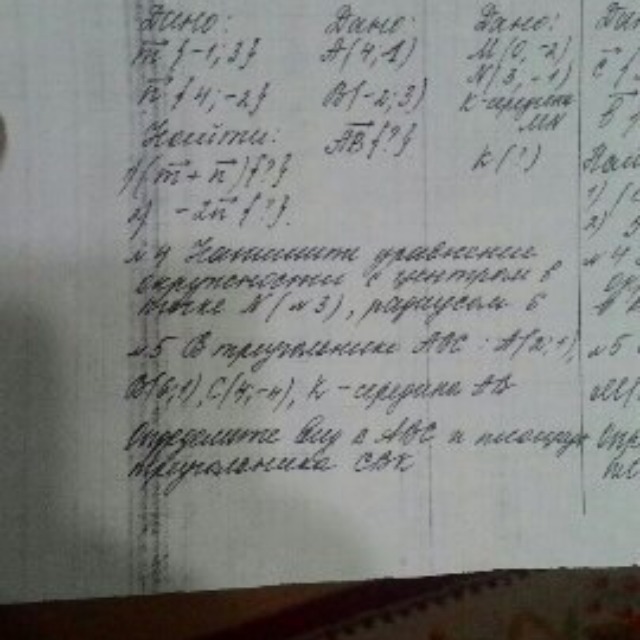 Дано:
m {-1; 3}
n {4; -2}
Найти:
1) (m + n) {?}
2) -2n {?}
Дано:
A(4; 1)
B(-2; 3)
AB {?}
Дано:
M(0; -2)
N(3; -1)
K - середина
MN
K(?)
№4 Напишите уравнение
окружности с центром в
точке N (№3), радиусом 6
№5 В треугольнике ABC : A(2; 1),
B(6; 1), C(4; -4), K - середина AB
Определите вид Δ ABC и площадь
треугольника CBK